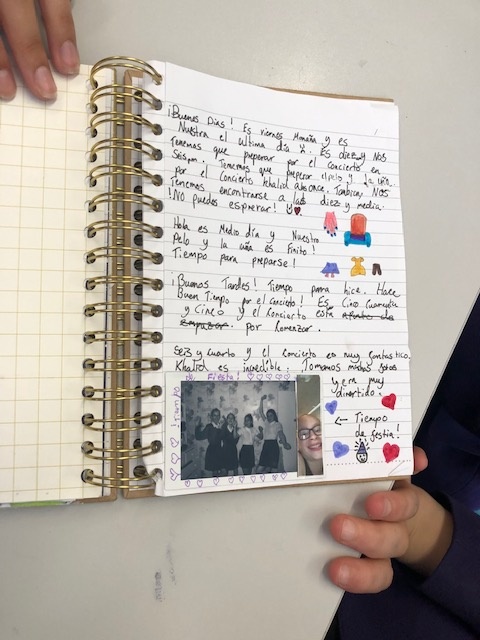 ¡Buenos Dias! Es viernes Mañaña y es
Nuestra el ultima día. Es diez y Nos
Tenemos que preperar por el concierto en
Seis pm. Tenemos que preperar el pelo y la uña
por el concierto Khalid a las once. Tambien, Nos
Tenemos encontrarse a las diez y media.
¡No puedes esprerar!
Hola es Medio día y Nuestro
Pelo y la uña es Finito!
Tiempo para preparse!
¡Buenos Tardes! Tiempo para hice. Hace
Buen Tiempo por el concierto! Es Cinco Cuarenta
y Cinco y el Concierto esta
por Comenzar.
Seis y Cuarto y el concierto es muy fantastico.
Khalid es increible. Tomamos muchas fotos
y era muy
divertido.
← Tiempo
de festia!
¡Tiempo
de Fiesta!